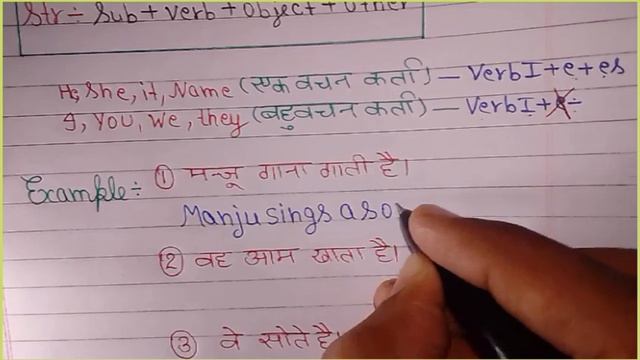 Str ÷ Sub + Verb + Object + Other
He, She, it, Name (एक वचन कर्ता) — Verb I + e + es
I, You, We, they (बहुवचन कर्ता) — Verb I +
Example ÷ ① मन्जू गाना गाती है।
Manju sings a so
② वह आम खाता है।
③ वे सोते है।